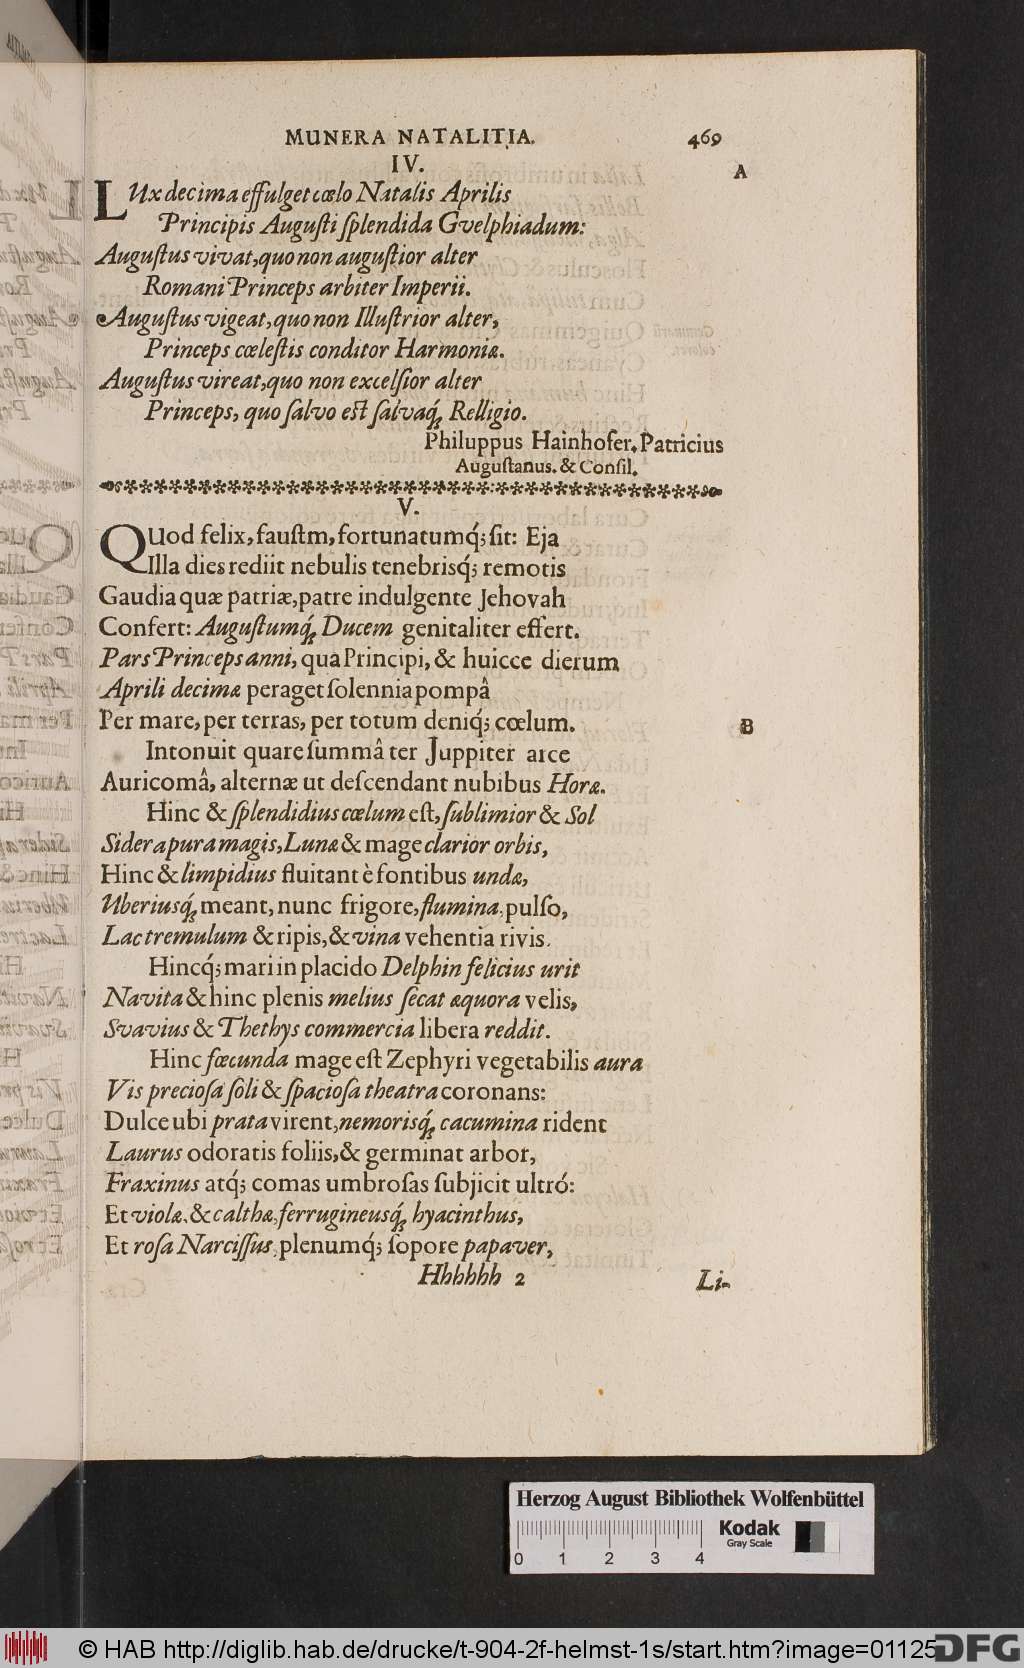 MUNERA NATALITIA. 469
IV.
A
LUx decima effulget cœlo Natalis Aprilis
Principis Auguſti ſplendida Gvelphiadum:
Auguſtus vivat, quo non auguſtior alter
Romani Princeps arbiter Imperii.
Auguſtus vigeat, quo non Illuſtrior alter,
Princeps cœleſtis conditor Harmoniæ.
Auguſtus vireat, quo non excelſior alter
Princeps, quo ſalvo eſt ſalvaq́; Relligio.
Philuppus Hainhofer. Patricius
Auguſtanus. & Conſil.
V.
QUod felix, fauſtm, fortunatumq́; ſit: Eja
Illa dies rediit nebulis tenebrisq́; remotis
Gaudia quæ patriæ, patre indulgente Jehovah
Confert: Auguſtumq́; Ducem genitaliter effert.
Pars Princeps anni, qua Principi, & huicce dierum
Aprili decimæ peraget ſolennia pompâ
Per mare, per terras, per totum deniq́; cœlum.
B
Intonuit quare ſummâ ter Juppiter arce
Auricomâ, alternæ ut deſcendant nubibus Horæ.
Hinc & ſplendidius cœlum eſt, ſublimior & Sol
Sidera pura magis, Lunæ & mage clarior orbis,
Hinc & limpidius fluitant è fontibus undæ,
Uberiusq́; meant, nunc frigore, flumina, pulſo,
Lac tremulum & ripis, & vina vehentia rivis.
Hincq́; mari in placido Delphin felicius urit
Navita & hinc plenis melius ſecat æquora velis,
Svavius & Thethys commercia libera reddit.
Hinc fœcunda mage eſt Zephyri vegetabilis aura
Vis precioſa ſoli & ſpacioſa theatra coronans:
Dulce ubi prata virent, nemorisq́; cacumina rident
Laurus odoratis foliis, & germinat arbor,
Fraxinus atq́; comas umbroſas ſubjicit ultró:
Et violæ, & calthæ, ferrugineusq́; hyacinthus,
Et roſa Narciſſus, plenumq́; ſopore papaver,
Hhhhhh 2 Li-
Herzog August Bibliothek Wolfenbüttel
0 1 2 3 4
Kodak
Gray Scale
© HAB http://diglib.hab.de/drucke/t-904-2f-helmst-1s/start.htm?image=01125
DFG